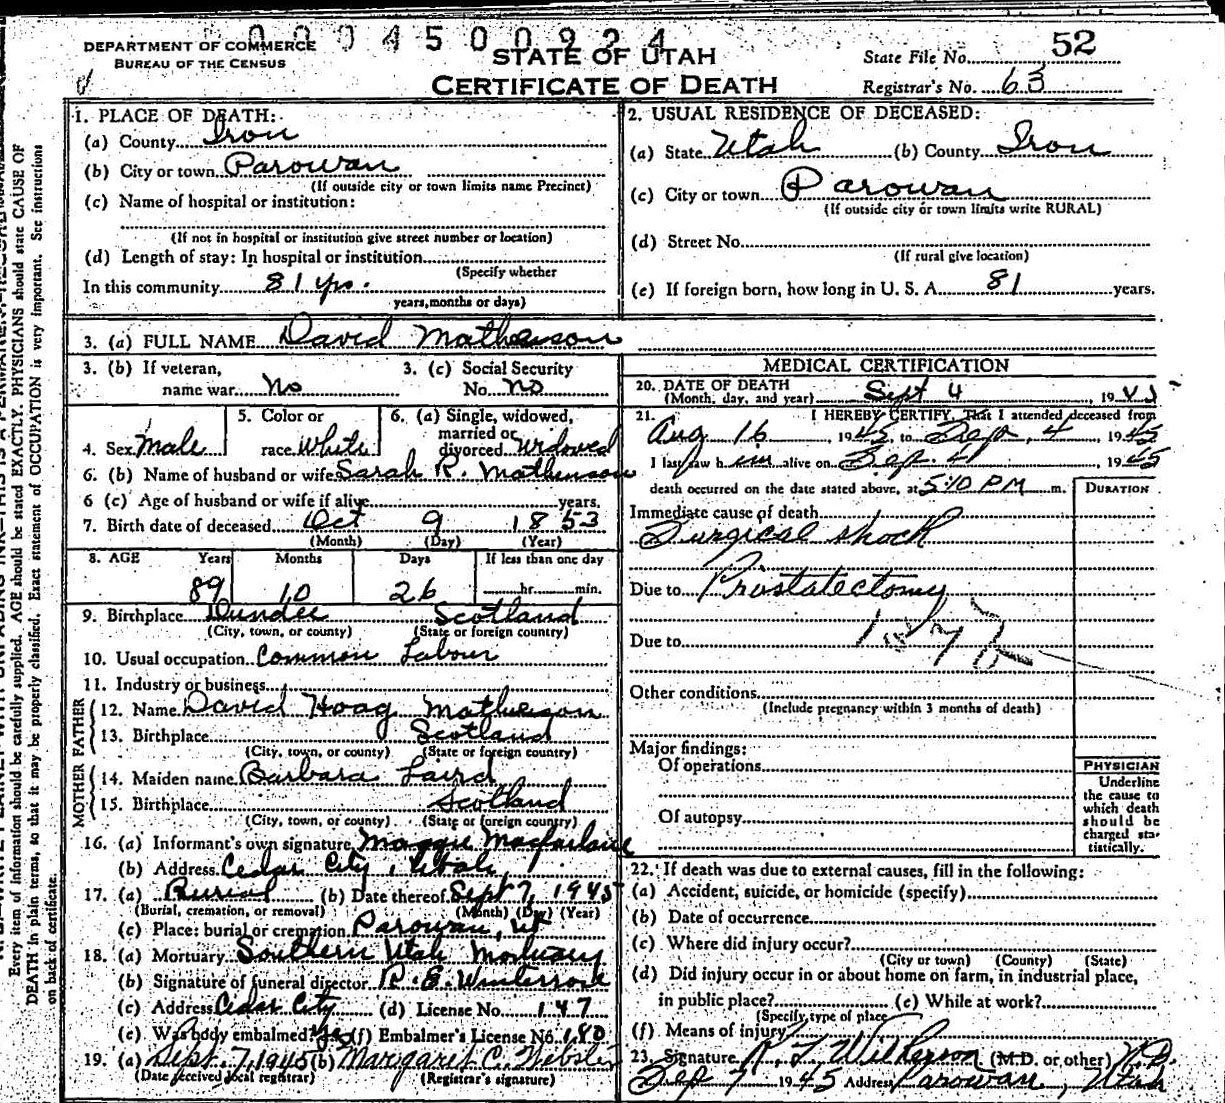 0004500924
52
DEPARTMENT OF COMMERCE
BUREAU OF THE CENSUS
STATE OF UTAH
CERTIFICATE OF DEATH
State File No.
Registrar's No. 63
1. PLACE OF DEATH:
(a) County Iron
(b) City or town Parowan
(If outside city or town limits name Precinct)
(c) Name of hospital or institution:
(If not in hospital or institution give street number or location)
(d) Length of stay: In hospital or institution
(Specify whether
In this community 81 yrs.
years, months or days)
2. USUAL RESIDENCE OF DECEASED:
(a) State Utah (b) County Iron
(c) City or town Parowan
(If outside city or town limits write RURAL)
(d) Street No.
(If rural give location)
(e) If foreign born, how long in U. S. A. 81 years.
3. (a) FULL NAME David Matheson
3. (b) If veteran,
name war No
3. (c) Social Security
No. no
4. Sex Male
5. Color or
race White
6. (a) Single, widowed,
married or
divorced Widowed
6. (b) Name of husband or wife Sarah R. Matheson
6 (c) Age of husband or wife if alive years.
7. Birth date of deceased Oct 9 1853
(Month) (Day) (Year)
8. AGE Years Months Days If less than one day
89 10 26 hr. min.
9. Birthplace Dundee Scotland
(City, town, or county) (State or foreign country)
10. Usual occupation Common Labour
11. Industry or business
FATHER
12. Name David Hoag Matheson
13. Birthplace Scotland
(City, town, or county) (State or foreign country)
MOTHER
14. Maiden name Barbara Laird
15. Birthplace Scotland
(City, town, or county) (State or foreign country)
16. (a) Informant's own signature Maggie Macfarlane
(b) Address Cedar City, Utah
17. (a) Burial (b) Date thereof Sept 7, 1945
(Burial, cremation, or removal) (Month) (Day) (Year)
(c) Place: burial or cremation Parowan, Ut
18. (a) Mortuary Southern Utah Mortuary
(b) Signature of funeral director
(c) Address Cedar City (d) License No. 147
(e) Was body embalmed? yes (f) Embalmer's License No. 180
19. (a) Sept. 7, 1945 (b) Margaret C. Webster
(Date received local registrar) (Registrar's signature)
MEDICAL CERTIFICATION
20. DATE OF DEATH
(Month, day, and year) Sept 4, 1945
21. I HEREBY CERTIFY, That I attended deceased from
Aug 16, 1945, to Sep. 4, 1945
I last saw him alive on Sep. 4, 1945
death occurred on the date stated above, at 5:10 PM m.
DURATION
Immediate cause of death
Surgical shock
Due to Prostatectomy
Due to
Other conditions
(Include pregnancy within 3 months of death)
Major findings:
Of operations
Of autopsy
PHYSICIAN
Underline
the cause to
which death
should be
charged sta-
tistically.
22. If death was due to external causes, fill in the following:
(a) Accident, suicide, or homicide (specify)
(b) Date of occurrence
(c) Where did injury occur?
(City or town) (County) (State)
(d) Did injury occur in or about home on farm, in industrial place,
in public place? (e) While at work?
(Specify type of place
(f) Means of injury
23. Signature Wilkerson (M.D. or other) M.D.
Sep 7 1945 Address Parowan, Utah
Every item of information should be carefully supplied. AGE should be stated EXACTLY. PHYSICIANS should state CAUSE OF
DEATH in plain terms, so that it may be properly classified. Exact statement of OCCUPATION is very important. See instructions
on back of certificate.